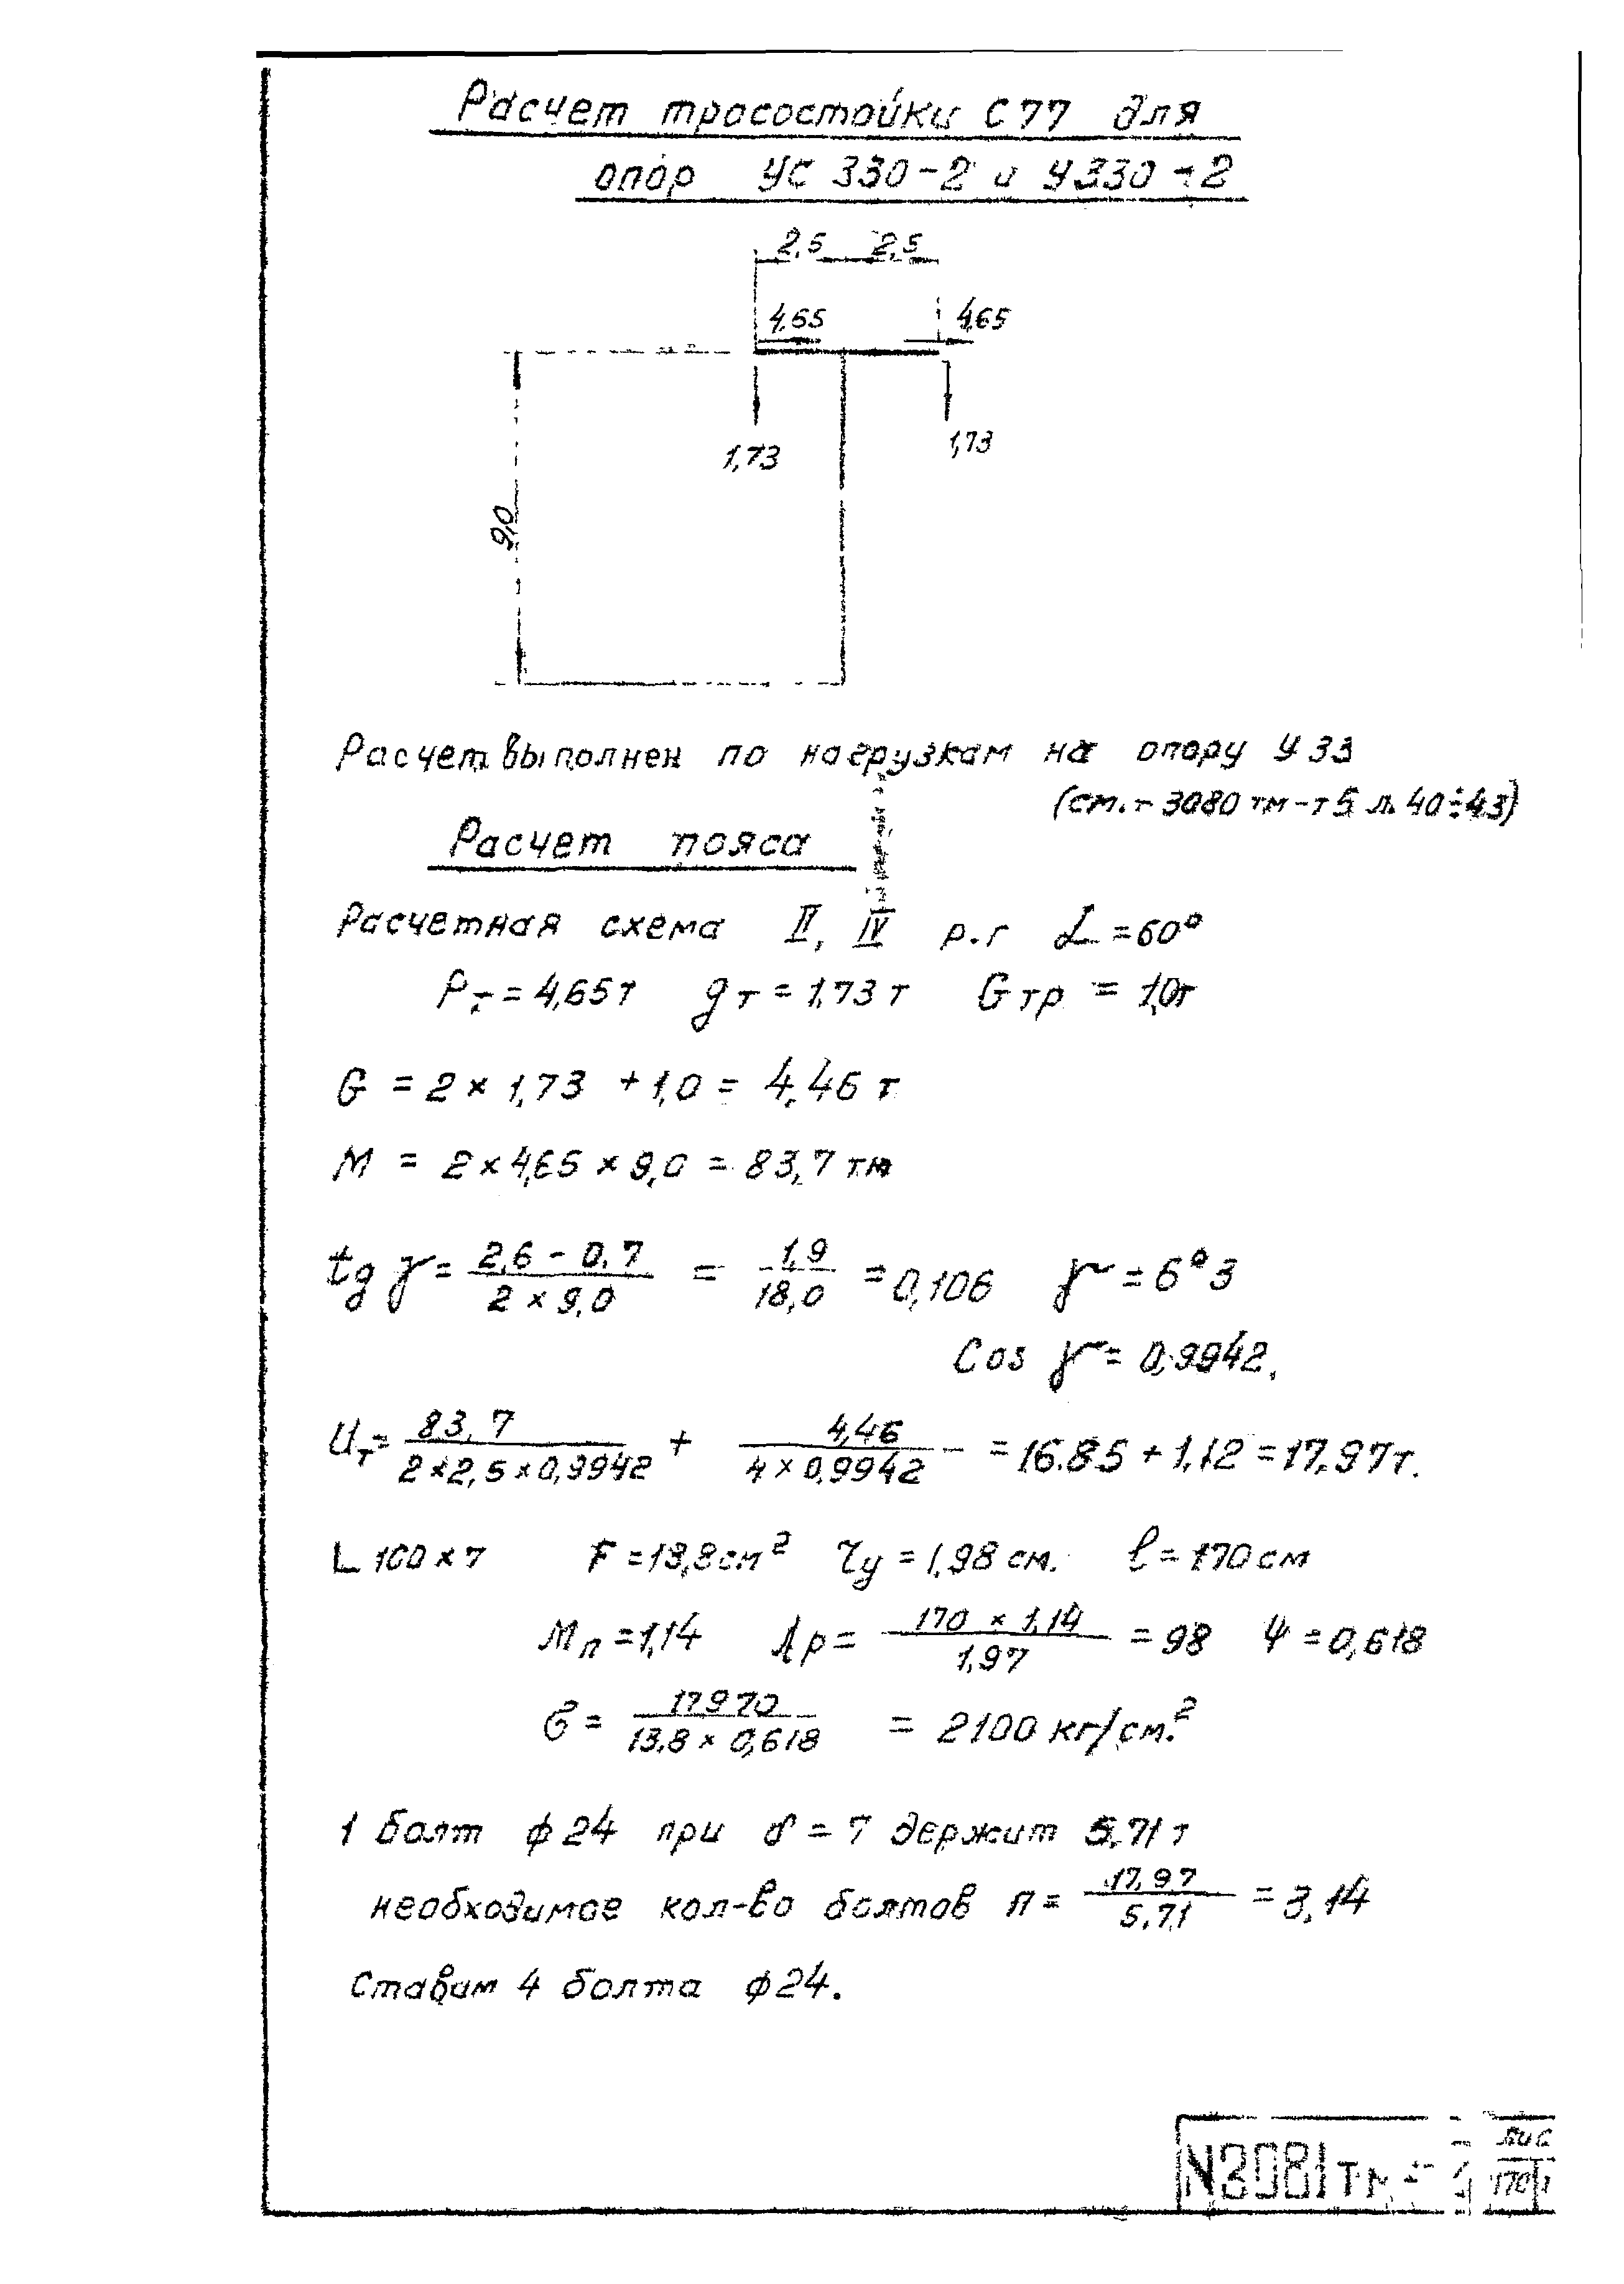 Расчет тросостойки С77 для
опор УС 330-2 и У330-2
2,5 2,5
4,65 4,65
1,73 1,73
9,0
Расчет выполнен по нагрузкам на опору У33
(см. т 3080 тм-т5 л. 40÷43)
Расчет пояса
Расчетная схема II, IV р.г α = 60°
Pт = 4,65т gт = 1,73 т Gтр = 1,0т
G = 2 × 1,73 + 1,0 = 4,46 т
M = 2 × 4,65 × 9,0 = 83,7 тм
tg γ = (2,6 - 0,7) / (2 × 9,0) = 1,9 / 18,0 = 0,106 γ = 6°3
Cos γ = 0,9942.
Uт = 83,7 / (2×2,5×0,9942) + 4,46 / (4 × 0,9942) = 16.85 + 1,12 = 17,97т.
L 100×7 F = 13,8см² ry = 1,98 см. l = 170 см
Mп = 1,14 λp = (170 × 1,14) / 1,97 = 98 Ψ = 0,618
σ = 17970 / (13,8 × 0,618) = 2100 кг/см.²
1 болт ф24 при δ = 7 держит 5,71 т
необходимое кол-во болтов п = 17,97 / 5,71 = 3,14
Ставим 4 болта ф24.
N3081тм-